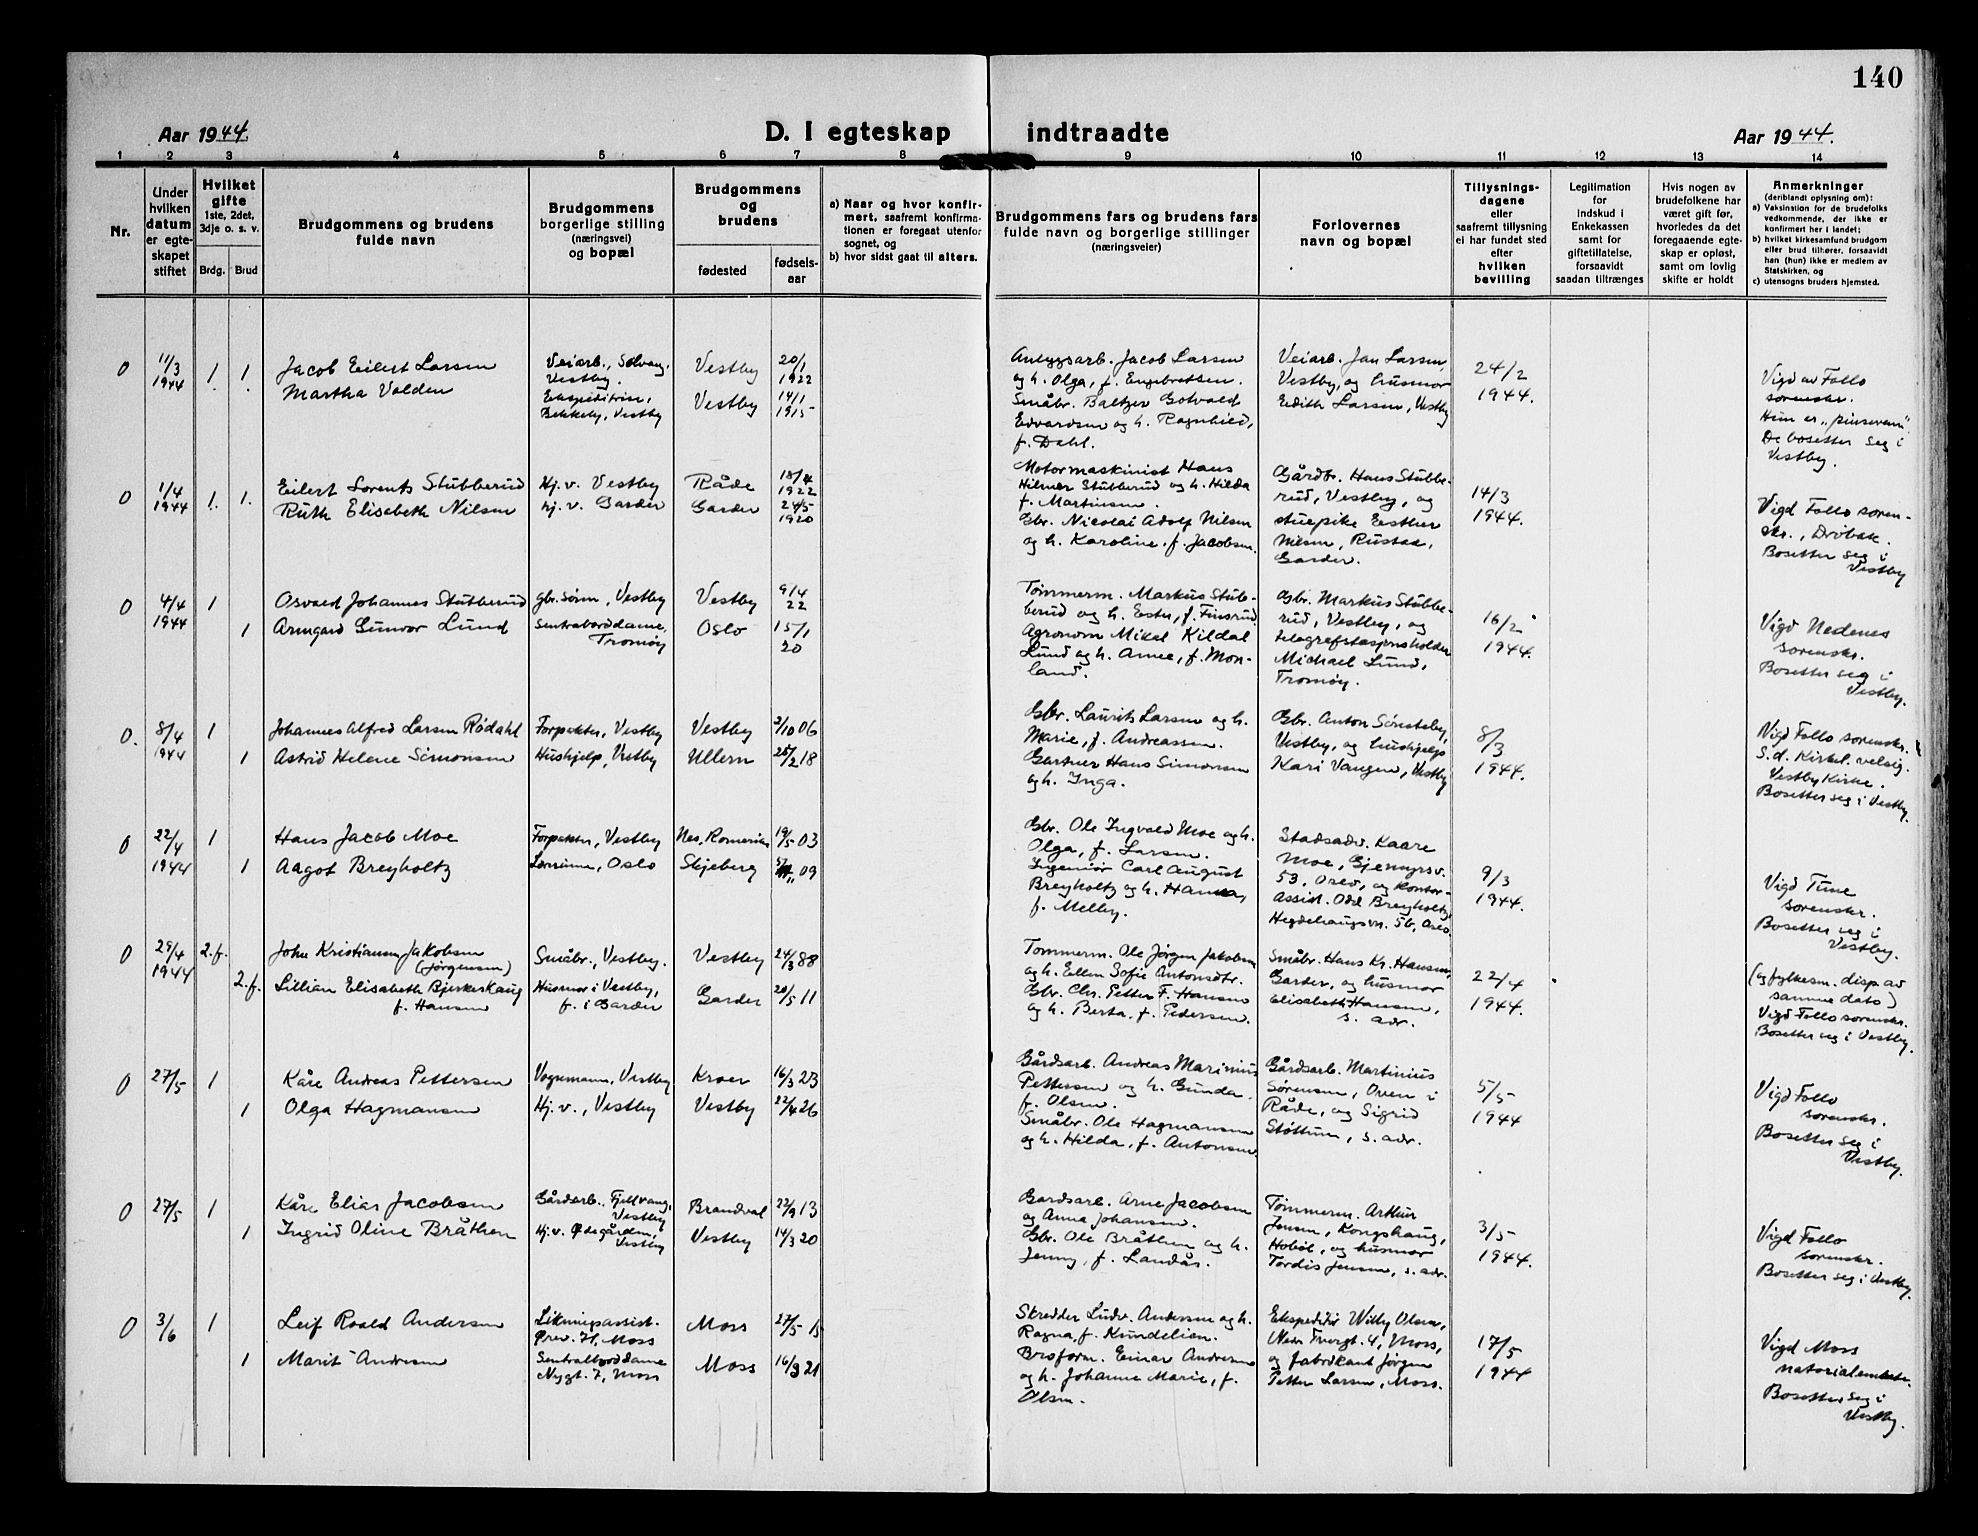 140
Aar 1944.
D. I egteskap indtraadte
Aar 1944.
1 2 3 4 5 6 7 8 9 10 11 12 13 14
Nr.
Under hvilken datum er egteskapet stiftet
Hvilket gifte
1ste, 2det, 3dje o. s. v.
Brdg. Brud
Brudgommens og brudens fulde navn
Brudgommens borgerlige stilling (næringsvei) og bopæl
Brudgommens og brudens
fødested
fødsels-aar
a) Naar og hvor konfirmert, saafremt konfirmationen er foregaat utenfor sognet, og
b) hvor sidst gaat til alters.
Brudgommens fars og brudens fars fulde navn og borgerlige stillinger (næringsveier)
Forlovernes navn og bopæl
Tillysningsdagene eller saafremt tillysning ei har fundet sted efter hvilken bevilling
Legitimation for indskud i Enkekassen samt for giftetillatelse, forsaavidt saadan tiltrænges
Hvis nogen av brudefolkene har været gift før, hvorledes da det foregaaende egteskap er opløst, samt om lovlig skifte er holdt
Anmerkninger
(deriblandt oplysning om):
a) Vaksination for de brudefolks vedkommende, der ikke er konfirmert her i landet;
b) hvilket kirkesamfund brudgom eller brud tilhører, forsaavidt han (hun) ikke er medlem av Statskirken, og
c) utensogns bruders hjemsted.
0 11/3 1944 1. 1.
Jacob Eilert Larsen
Martha Volden
Veiarb., Solvang, Vestby.
Ekspeditrise, Bekkeby, Vestby
Vestby 20/1 1922
Vestby 14/1 1915
Anleggsarb. Jacob Larsen
og h. Olga, f. Engebretsen.
Småbr. Baltzer Gotvald
Edvardsen og h. Ragnhild,
f. Dahl.
Veiarb. Jan Larsen,
Vestby, og husmor
Edith Larsen, Vestby
24/2
1944.
Vigd av Follo
sorenskr.
Hun er "pinseven"
De bosetter seg i
Vestby.
0 1/4 1944 1. 1.
Eilert Lorents Stubberud
Ruth Elisabeth Nilsen
Hj. v. Vestby
hj. v. Garder
Råde 18/4 1922
Garder 24/5 1920
Motormaskinist Hans
Hilmer Stubberud og h. Hilda
f. Martinsen.
Gbr. Nicolai Adolf Nilsen
og h. Karoline, f. Jacobsen.
Gårdbr. Hans Stubbe-
rud, Vestby, og
stuepike Esther
Nilsen, Rustad,
Garder.
14/3
1944.
Vigd Follo soren-
skr., Drøbak.
Bosetter seg i
Vestby
0 4/4 1944 1 1
Osvald Johannes Stubberud
Armgard Gunvor Lund
gbr. sønn, Vestby
Sentralborddame, Tromøy
Vestby 9/4 22
Oslo 15/1 20
Tømmerm. Markus Stub-
berud og h. Ester, f. Finsrud
Agronom Mikal Kildal
Lund og h. Amee, f. Mon-
land.
Gbr. Markus Stubbe-
rud, Vestby, og
telegrafstasjonsholder
Michael Lund,
Tromøy.
16/2
1944.
Vigd Nedenes
sorenskr.
Bosetter seg i
Vestby.
0. 8/4 1944 1 1
Johannes Alfred Larsen Rødahl
Astrid Helene Simonsen
Forpakter, Vestby
Hushjelp, Vestby
Vestby 2/10 06
Ullern 25/2 18
Gbr. Laurits Larsen og h.
Marie, f. Andreassen.
Gartner Hans Simonsen
og h. Inga.
Gbr. Anton Sørensteby,
Vestby, og hushjelp
Kari Vangen, Vestby
8/3
1944.
Vigd Follo sorenskr.
S. d. Kirkel. velsig.
Vestby Kirke.
Bosetter seg i Vestby.
0 22/4 1944 1 1
Hans Jacob Moe
Aagot Breyholtz
Forpakter, Vestby
Lærerinne, Oslo
Nes, Romerike 19/5 03
Skjeberg 09
Gbr. Ole Ingvald Moe og h.
Olga, f. Larsen.
Ingeniør Carl August
Breyholtz og h. Hanna,
f. Melby.
Stadsadv. Kaare
Moe, Gjennyrsv.
53, Oslo, og kontor-
assist. Odd Breyholtz,
Hegdehaugsvn. 5b, Oslo.
9/3
1944.
Vigd Tune
sorenskr.
Bosetter seg i
Vestby.
0 29/4 1944 2. f. 2. f.
John Kristiansen Jakobsen
(Jørgensen)
Lillian Elisabeth Bjerkeskaug
f. Hansen
Småbr., Vestby.
Husmor i Vestby,
f. i Garder
Vestby 24/3 88
Garder 20/5 11
Tømmerm. Ole Jørgen Jakobsen
og h. Ellen Sofie Antonsdtr.
Gbr. Chr. Petter F. Hansen
og h. Berta, f. Pedersen.
Småbr. Hans Kr. Hansen,
Garder, og husmor
Elisabeth Hansen,
s. adr.
22/4
1944.
(og fylkesm. disp. av
samme dato)
Vigd Follo sorenskr.
Bosetter seg i Vestby.
0 27/5 1 1
Kåre Andreas Pettersen
Olga Hagmansen
Vognmann, Vestby
Hj. v., Vestby
Kroer 16/3 23
Vestby 22/4 26
Gårdsarb. Andreas Marinius
Pettersen og h. Gunda,
f. Olsen.
Småbr. Ole Hagmansen
og h. Hilda, f. Antonsen.
Gårdsarb. Martinius
Sørensen, Oven i
Råde, og Sigrid
Støttum, s. adr.
5/5
1944
Vigd Follo
sorenskr.
Bosetter seg i
Vestby.
0 27/5 1 1
Kåre Elias Jacobsen
Ingrid Oline Bråthen
Gårdsarb., Fjellvang, Vestby
Hj. v. Ødegården, Vestby
Brandval 22/9 13
Vestby 14/3 20
Gardsarb. Arne Jacobsen
og Anna Johansen.
Gbr. Ole Bråthen og h.
Jenny, f. Landås.
Tømmerm. Arthur
Jensen, Kongshaug,
Hobøl, og husmor
Tordis Jensen, s. adr.
3/5
1944.
Vigd Follo
sorenskr.
Bosetter seg i Vestby.
0 3/6 1 1
Leif Roald Andersen
Marit Andresen
Likningsassist.
Prev. H, Moss
Sentralborddame
Nygt. 7, Moss
Moss 27/5 15
Moss 16/3 21
Skredder Ludv. Andersen og h.
Ragna, f. Kundelien.
Broform. Einar Andresen
og h. Johanne Marie, f.
Olsen.
Ekspeditør Willy Olsen,
Nedr. Torvgt. 4, Moss,
og fabrikant Jørgen
Petter Larsen, Moss.
17/5
1944
Vigd Moss
notarialembete.
Bosetter seg i
Vestby.